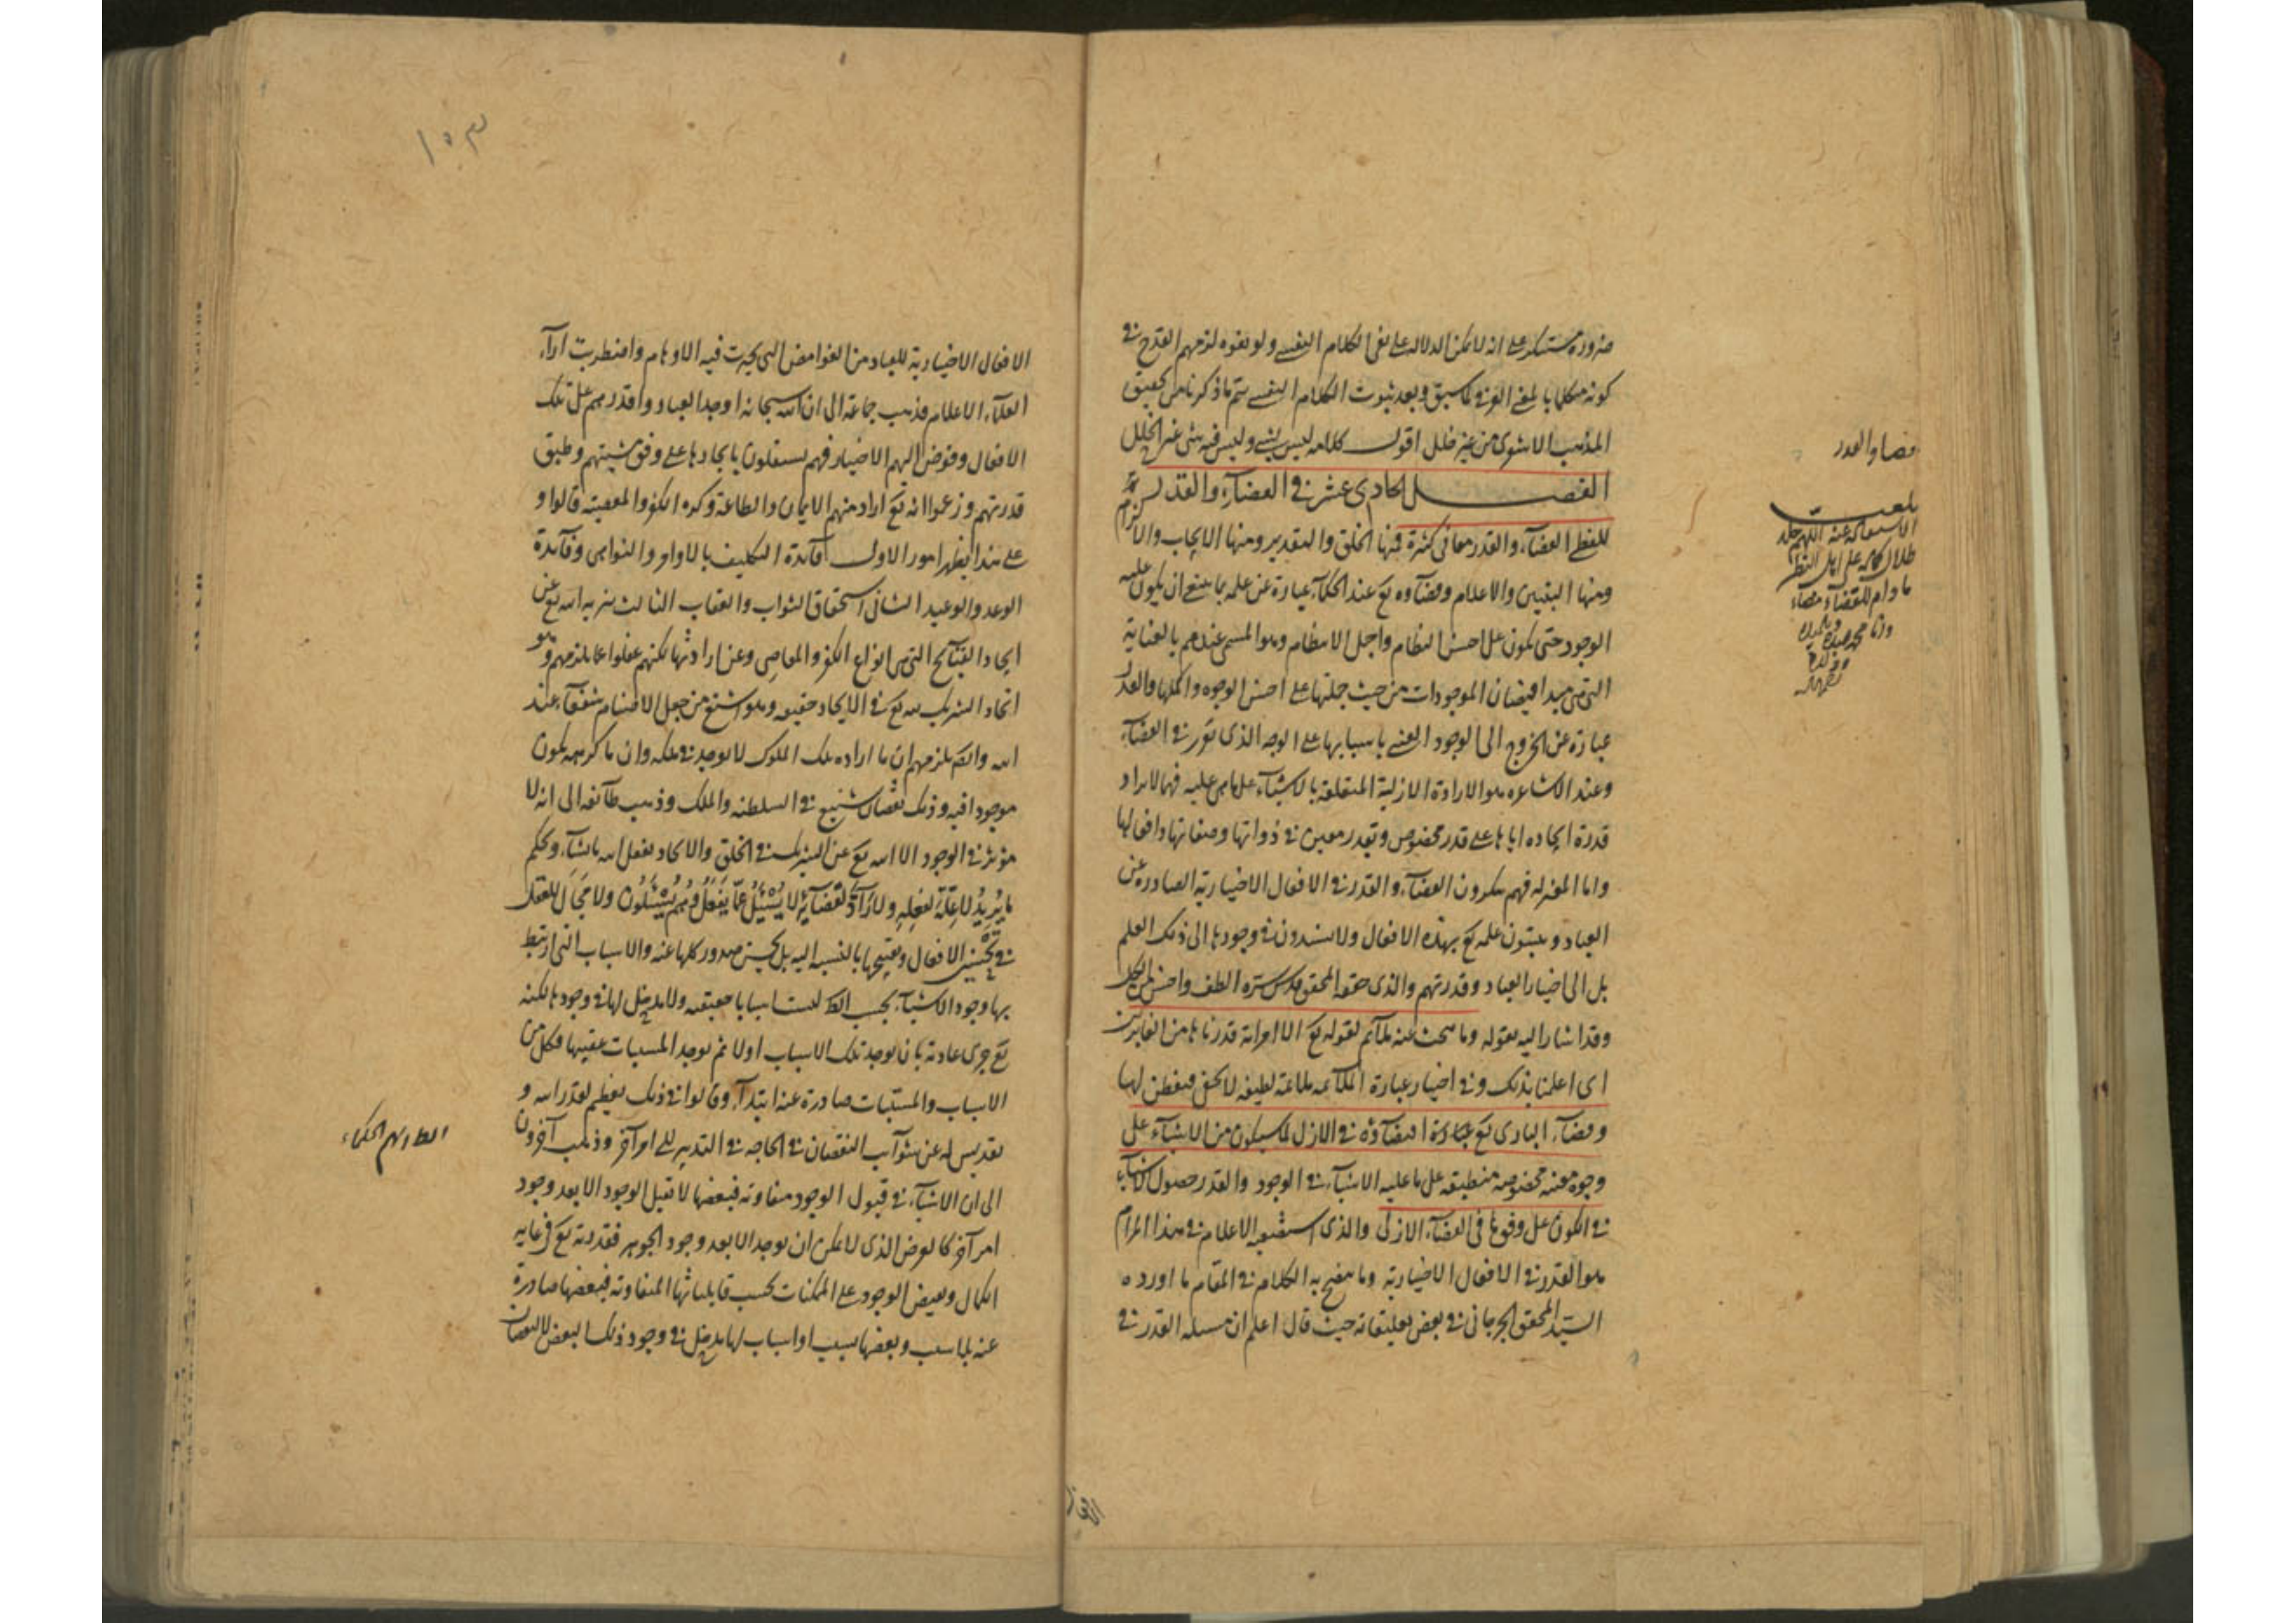 ضرورة على انه لا يمكن الدلالة على نفى الكلام النفسى ولو نفوه لزمهم القدح فى
كونه متكلما بالمعنى كما سبق وبعد ثبوت الكلام النفسى يتم ما ذكرنا من تحقيق
المذهب الاشعرى من غير خلل اقول كلامه ليس بشىء وليس فيه شىء غير الخلل
الفصل الحادى عشر فى القضآء والقدر
للفظ القضآء والقدر معانى كثيرة فمنها الخلق والتقدير ومنها الايجاب والالزام
ومنها التبيين والاعلام وقضآوه تع عند الحكمآء عبارة عن علمه بما ينبغى ان يكون عليه
الوجود حتى يكون على احسن النظام واجل الانتظام وهو المسمى عندهم بالعناية
التى هى مبدا فيضان الموجودات من حيث جملتها على احسن الوجوه واكملها والقدر
عبارة عن الخروج الى الوجود العينى باسبابها على الوجه الذى تقرر فى القضآء
وعند الاشاعره هو الارادة الازلية المتعلقة بالاشيآء على ما هى عليه فيما لا يزال
قدرة ايجاده اياها على قدر مخصوص وتقدير معين فى ذواتها وصفاتها وافعالها
واما المعتزله فهم ينكرون القضآء والقدر فى الافعال الاختيارية الصادره عن
العباد ويثبتون علمه تع بهذه الافعال ولا يسندون فى وجودها الى ذلك العلم
بل الى اختيار العباد وقدرتهم والذى حققه المحقق قدس سره الطف واحسن من الكل
وقد اشار اليه بقوله وما بحث عنه لقوله تع الا امراته قدرناها من الغابرين
اى اعلمنا بذلك وفى اختيار عبارة الملآئمه ملاءمة لطيفه لا تخفى فتفطن لها
وقضآء البارى تع عبارة اقتضآؤه فى الازل لما سيكون من الاشيآء على
وجوه معينه مخصوصه منطبقه على ما عليه الاشيآء فى الوجود والقدر حصول الاشيآء
فى الكون على وقوعها فى القضآء الازلى والذى استصعبه الاعلام فى هذا المرام
هو القدر فى الافعال الاختيارية وما يتضح به الكلام فى المقام ما اورده
السيد المحقق الجرجانى فى بعض تعليقاته حيث قال اعلم ان مسئله القدر فى
قضا والقدر
بلغت
ما دام للقضآء مضاء
الافعال الاختيارية للعباد من الغوامض التى تحيرت فيه الاوهام واضطربت ارآء
العلمآء الاعلام فذهب جماعة الى ان الله سبحانه اوجد العباد واقدرهم على تلك
الافعال وفوض اليهم الاختيار فهم يستقلون بايجادها على وفق مشيتهم وطبق
قدرتهم وزعموا انه تع اراد منهم الايمان والطاعة وكره الكفر والمعصيته قالوا و
على هذا يظهر امور الاول فآئدة التكليف بالاوامر والنواهى وفآئدة
الوعد والوعيد الثانى استحقاق الثواب والعقاب الثالث تنزيه الله تع عن
ايجاد القبآئح التى هى انواع الكفر والمعاصى وعن ارادتها لكنهم غفلوا عما يلزمهم وهو
اتخاذ الشريك لله تع فى الايجاد حقيقه وهو اشنع من جعل الاصنام شفعآء عند
الله وانه يلزمهم ان ما اراده ملك الملوك لا يوجد فى ملكه وان ما كرهه يكون
موجودا فيه وذلك نقصان شنيع فى السلطنه والملك وذهب طآئفه الى انه لا
مؤثر فى الوجود الا الله تع عن الشريك فى الخلق والايجاد يفعل الله ما يشآء ويحكم
ما يُرِيدُ لا عِلّة لفعله ولا رآدّ لقضآئه لا يُسْئَلُ عمّا يَفْعَلُ وهُمْ يُسْئَلُون ولا مَجَال للعقل
فى تحسين الافعال وتقبيحها بالنسبه اليه بل يحسن صدور كلها عنه والاسباب التى ارتبط
بها وجود الاشيآء بحسب الظ ليست اسبابا حقيقه ولا مدخل لها فى وجودها لكنه
تع جرى عادته بان يوجد تلك الاسباب اولا ثم يوجد المسببات عقيبها فكل من
الاسباب والمسببات صادرة عنه ابتدآء وقالوا فى ذلك تعظيم لقدر الله و
تقديس له عن شوآئب النقصان فى الحاجه فى التدبير الى امر آخر وذهب آخرون
الى ان الاشيآء فى قبول الوجود متفاوته فبعضها لا تقبل الوجود الا بعد وجود
امر آخر كالعرض الذى لا يمكن ان يوجد الا بعد وجود الجوهر فقدرته تع فى غايه
الكمال ويفيض الوجود على الممكنات بحسب قابلياتها المتفاوته فبعضها صادرة
عنه بلا سبب وبعضها بسبب او اسباب لها مدخل فى وجود ذلك البعض لا لنقصان
الظ انهم الحكماء
١٥٣